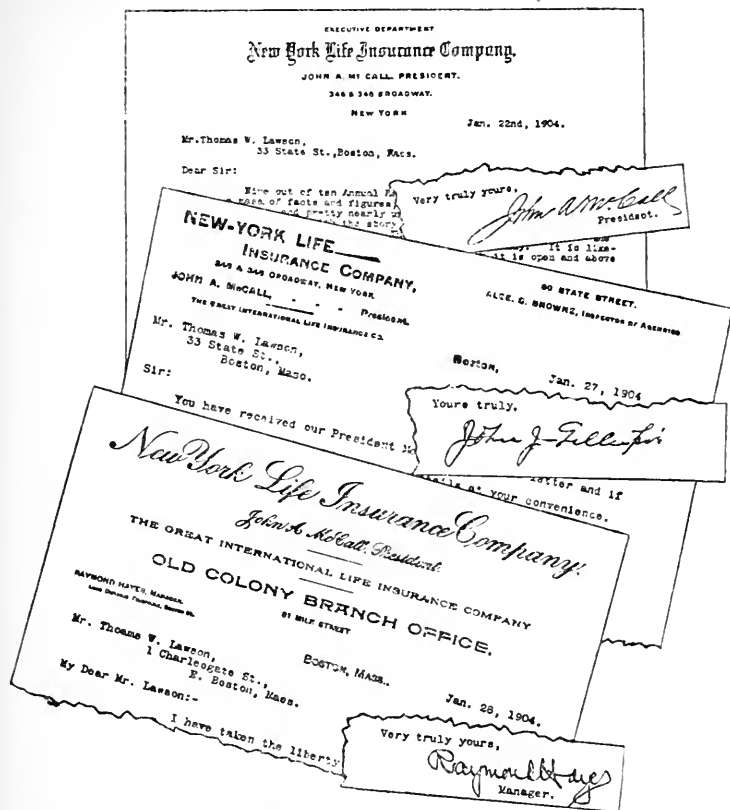 EXECUTIVE DEPARTMENT
New York Life Insurance Company,
JOHN A. MCCALL, PRESIDENT.
346 & 348 BROADWAY.
NEW YORK
Jan. 22nd, 1904.
Mr.Thomas W. Lawson,
33 State St.,Boston, Mass.
Dear Sir:
out of ten Annual
a mass of facts and figures
and pretty nearly
the story
It is like-
it is open and above
Very truly yours,
John A. McCall
President.
NEW-YORK LIFE
INSURANCE COMPANY,
346 & 348 BROADWAY, NEW YORK
JOHN A. McCALL, - - - President.
THE GREAT INTERNATIONAL LIFE INSURANCE CO.
60 STATE STREET.
INSPECTOR OF AGENCIES
Boston, Jan. 27, 1904
Mr. Thomas W. Lawson,
33 State St.,
Boston, Mass.
Sir:
You have received our President
letter and if
at your convenience.
Yours truly,
New York Life Insurance Company.
John A. McCall, President.
THE GREAT INTERNATIONAL LIFE INSURANCE COMPANY
OLD COLONY BRANCH OFFICE.
RAYMOND HAYES, MANAGER.
MILK STREET
BOSTON, MASS.
Jan. 28, 1904.
Mr. Thomas W. Lawson,
1 Charlesgate St.,
E. Boston, Mass.
My Dear Mr. Lawson:-
I have taken the liberty
Very truly yours,
Raymond Hayes
Manager.